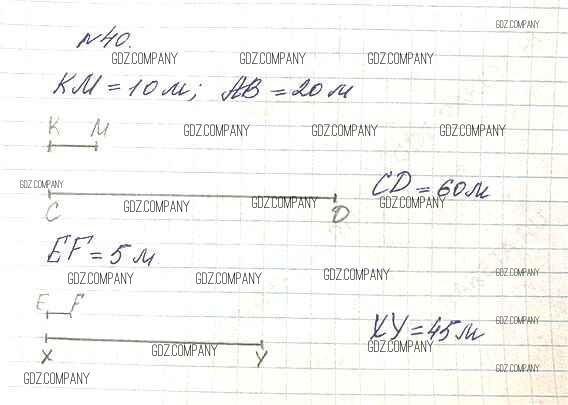 GDZ.COMPANY
№40.
GDZ.COMPANY GDZ.COMPANY GDZ.COMPANY
КМ = 10 м; АВ = 20 м
К М GDZ.COMPANY GDZ.COMPANY GDZ.COMPANY
GDZ.COMPANY
CD = 60 м
C GDZ.COMPANY GDZ.COMPANY D GDZ.COMPANY
EF = 5 м
GDZ.COMPANY GDZ.COMPANY GDZ.COMPANY GDZ.COMPANY
E F
XY = 45 м GDZ.COMPANY
X GDZ.COMPANY Y GDZ.COMPANY
GDZ.COMPANY GDZ.COMPANY